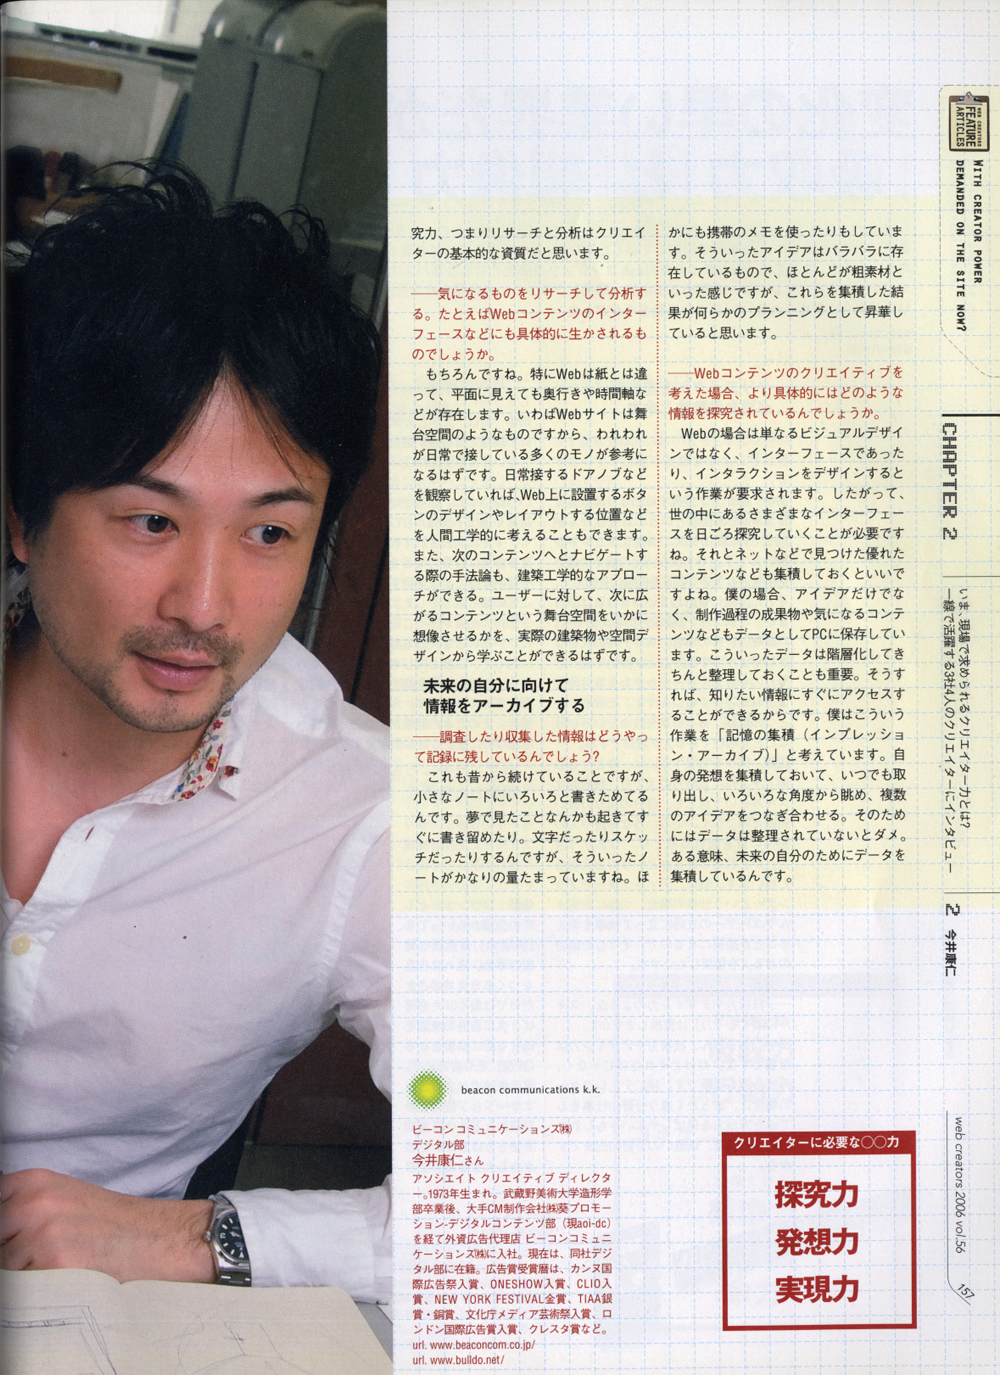 WEB CREATORS
FEATURE
ARTICLES
WITH CREATOR POWER
DEMANDED ON THE SITE NOW?
CHAPTER 2
いま、現場で求められるクリエイター力とは?
一線で活躍する3社4人のクリエイターにインタビュー
2 今井康仁
究力、つまりリサーチと分析はクリエイ
ターの基本的な資質だと思います。
――気になるものをリサーチして分析す
る。たとえばWebコンテンツのインター
フェースなどにも具体的に生かされるも
のでしょうか。
もちろんですね。特にWebは紙とは違
って、平面に見えても奥行きや時間軸な
どが存在します。いわばWebサイトは舞
台空間のようなものですから、われわれ
が日常で接している多くのモノが参考に
なるはずです。日常接するドアノブなど
を観察していれば、Web上に設置するボタ
ンのデザインやレイアウトする位置など
を人間工学的に考えることもできます。
また、次のコンテンツへとナビゲートす
る際の手法論も、建築工学的なアプロー
チができる。ユーザーに対して、次に広
がるコンテンツという舞台空間をいかに
想像させるかを、実際の建築物や空間デ
ザインから学ぶことができるはずです。
未来の自分に向けて
情報をアーカイブする
――調査したり収集した情報はどうやっ
て記録に残しているんでしょう?
これも昔から続けていることですが、
小さなノートにいろいろと書きためてる
んです。夢で見たことなんかも起きてす
ぐに書き留めたり。文字だったりスケッ
チだったりするんですが、そういったノ
ートがかなりの量たまっていますね。ほ
かにも携帯のメモを使ったりもしていま
す。そういったアイデアはバラバラに存
在しているもので、ほとんどが粗素材と
いった感じですが、これらを集積した結
果が何らかのプランニングとして昇華し
ていると思います。
――Webコンテンツのクリエイティブを
考えた場合、より具体的にはどのような
情報を探究されているんでしょうか。
Webの場合は単なるビジュアルデザイ
ンではなく、インターフェースであった
り、インタラクションをデザインすると
いう作業が要求されます。したがって、
世の中にあるさまざまなインターフェー
スを日ごろ探究していくことが必要です
ね。それとネットなどで見つけた優れた
コンテンツなども集積しておくといいで
すよね。僕の場合、アイデアだけでな
く、制作過程の成果物や気になるコンテ
ンツなどもデータとしてPCに保存してい
ます。こういったデータは階層化してき
ちんと整理しておくことも重要。そうす
れば、知りたい情報にすぐにアクセスす
ることができるからです。僕はこういう
作業を「記憶の集積（インプレッショ
ン・アーカイブ）」と考えています。自
身の発想を集積しておいて、いつでも取
り出し、いろいろな角度から眺め、複数
のアイデアをつなぎ合わせる。そのため
にはデータは整理されていないとダメ。
ある意味、未来の自分のためにデータを
集積しているんです。
beacon communications k.k.
ビーコン コミュニケーションズ㈱
デジタル部
今井康仁さん
アソシエイト クリエイティブ ディレクタ
ー。1973年生まれ。武蔵野美術大学造形学
部卒業後、大手CM制作会社㈱葵プロモー
ション-デジタルコンテンツ部（現aoi-dc）
を経て外資広告代理店 ビーコンコミュニ
ケーションズ㈱に入社。現在は、同社デジ
タル部に在籍。広告賞受賞暦は、カンヌ国
際広告祭入賞、ONESHOW入賞、CLIO入
賞、NEW YORK FESTIVAL金賞、TIAA銀
賞・銅賞、文化庁メディア芸術祭入賞、ロ
ンドン国際広告賞入賞、クレスタ賞など。
url. www.beaconcom.co.jp/
url. www.bulldo.net/
クリエイターに必要な○○力
探究力
発想力
実現力
web creators 2006 vol.56
157